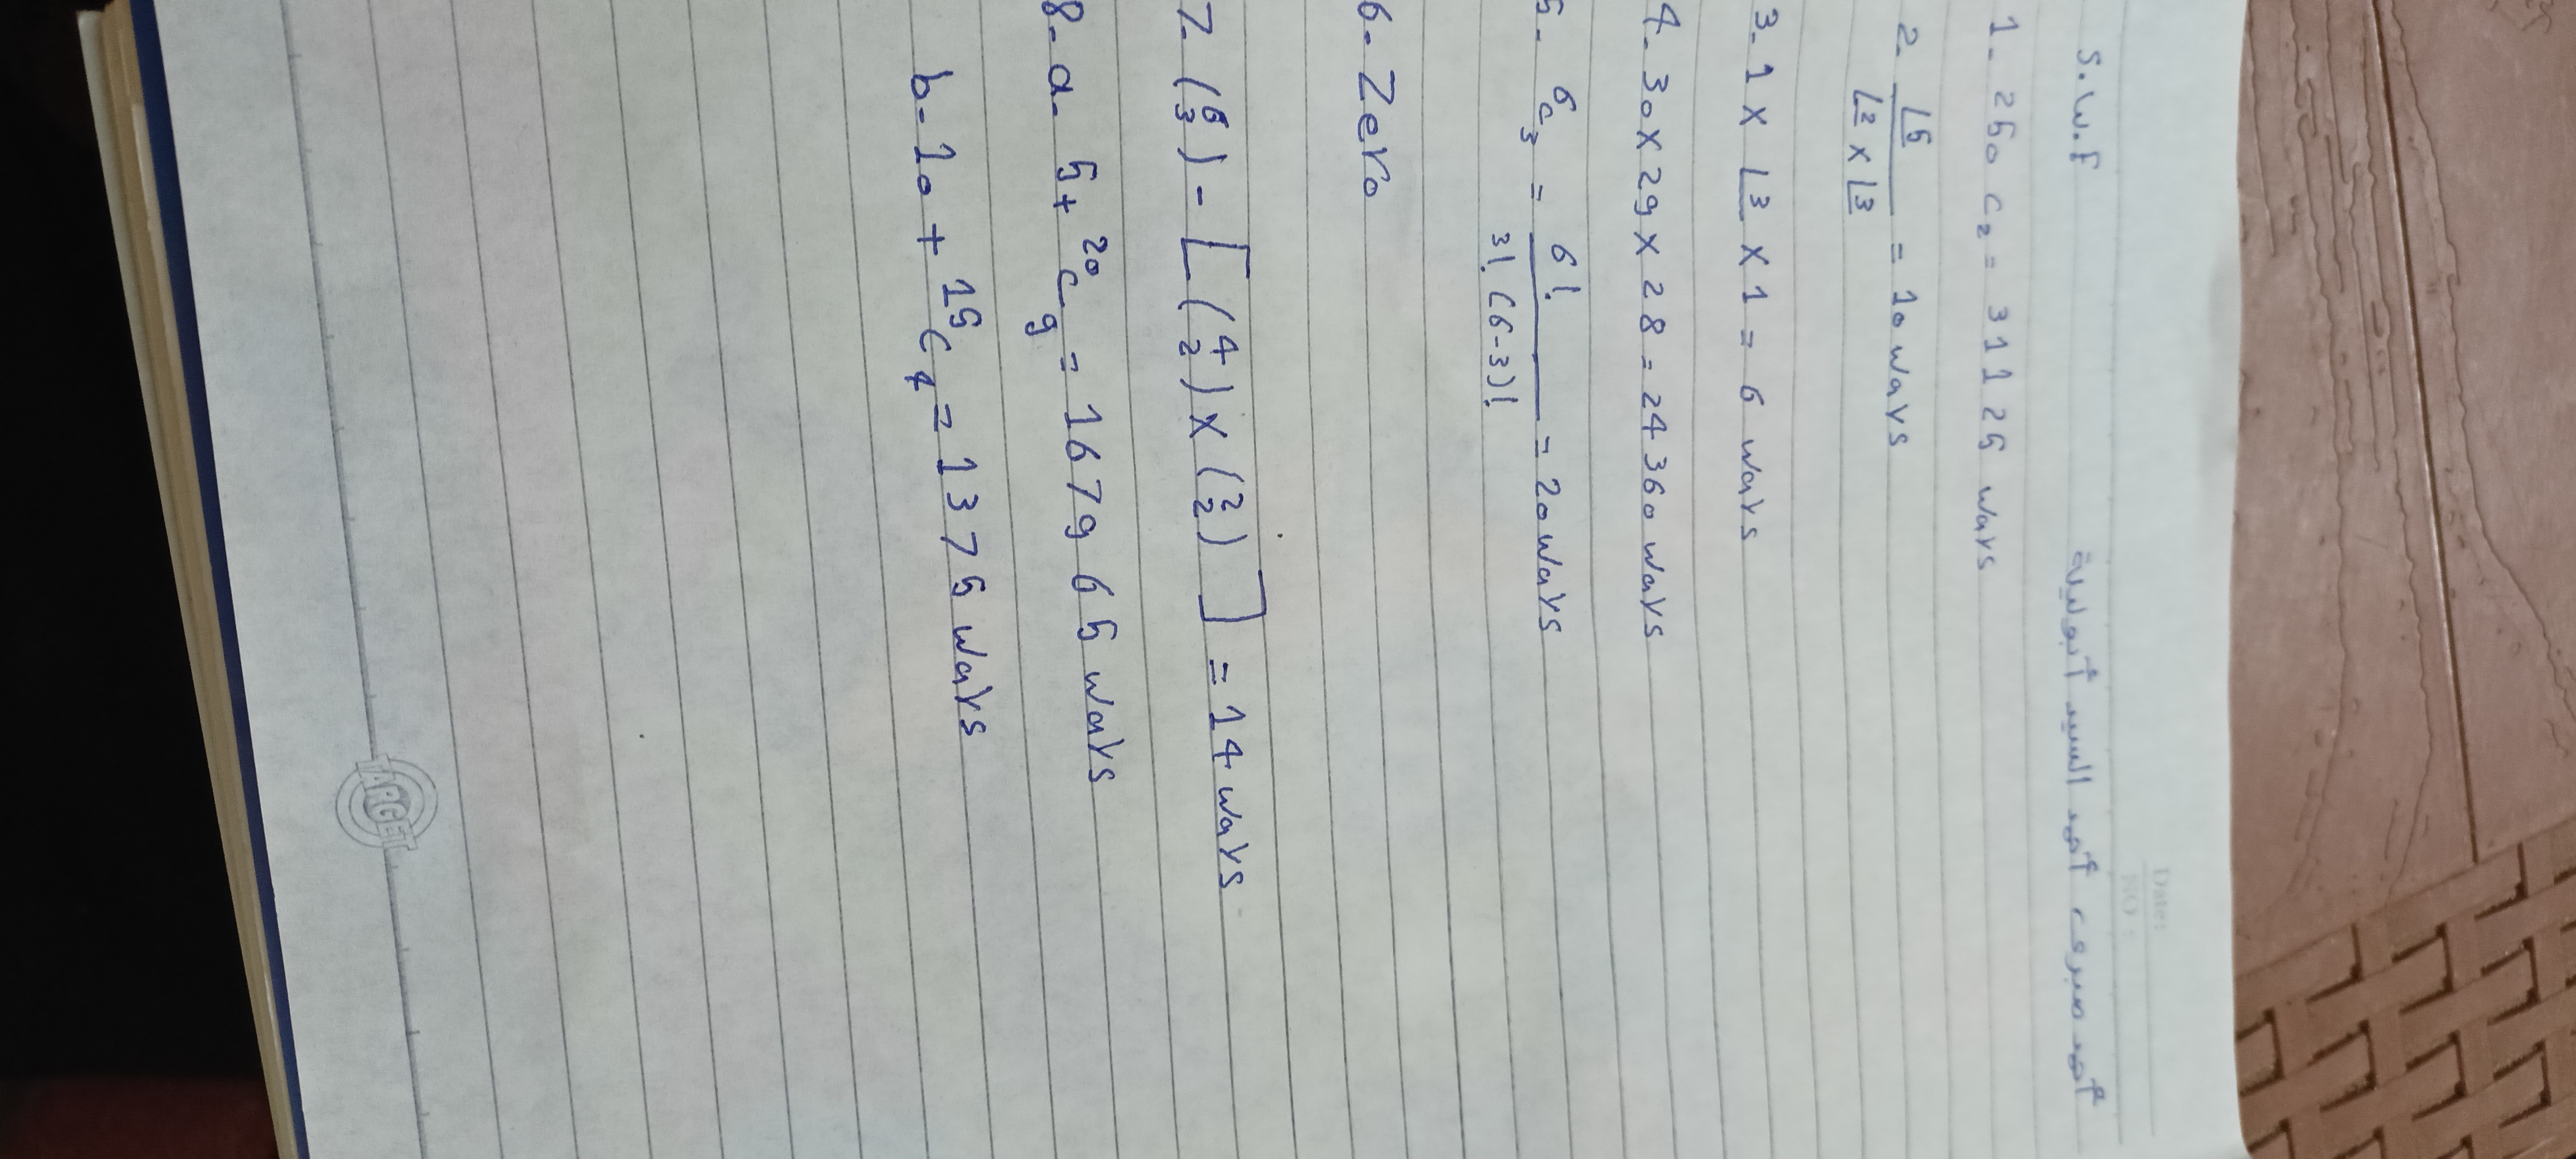 Date:
NO :
S.W.F أحمد صبرى أحمد السيد أبوليلة
1- 250 C₂ = 31125 ways
2- ∟5 / ∟2 × ∟3 = 10 ways
3- 1 × ∟3 × 1 = 6 ways
4- 30 × 29 × 28 = 24360 ways
5- ⁶C₃ = 6! / 3! (6-3)! = 20 ways
6- Zero
7- (6 3) - [(4 2) × (2 2)] = 14 ways
8- a- 5 + ²⁰C₉ = 167965 ways
b- 10 + ¹⁵C₄ = 1375 ways
TARGET